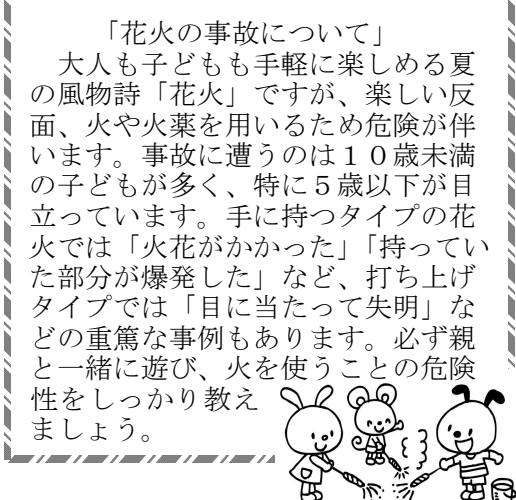 「花火の事故について」
大人も子どもも手軽に楽しめる夏
の風物詩「花火」ですが、楽しい反
面、火や火薬を用いるため危険が伴
います。事故に遭うのは１０歳未満
の子どもが多く、特に５歳以下が目
立っています。手に持つタイプの花
火では「火花がかかった」「持ってい
た部分が爆発した」など、打ち上げ
タイプでは「目に当たって失明」な
どの重篤な事例もあります。必ず親
と一緒に遊び、火を使うことの危険
性をしっかり教え
ましょう。